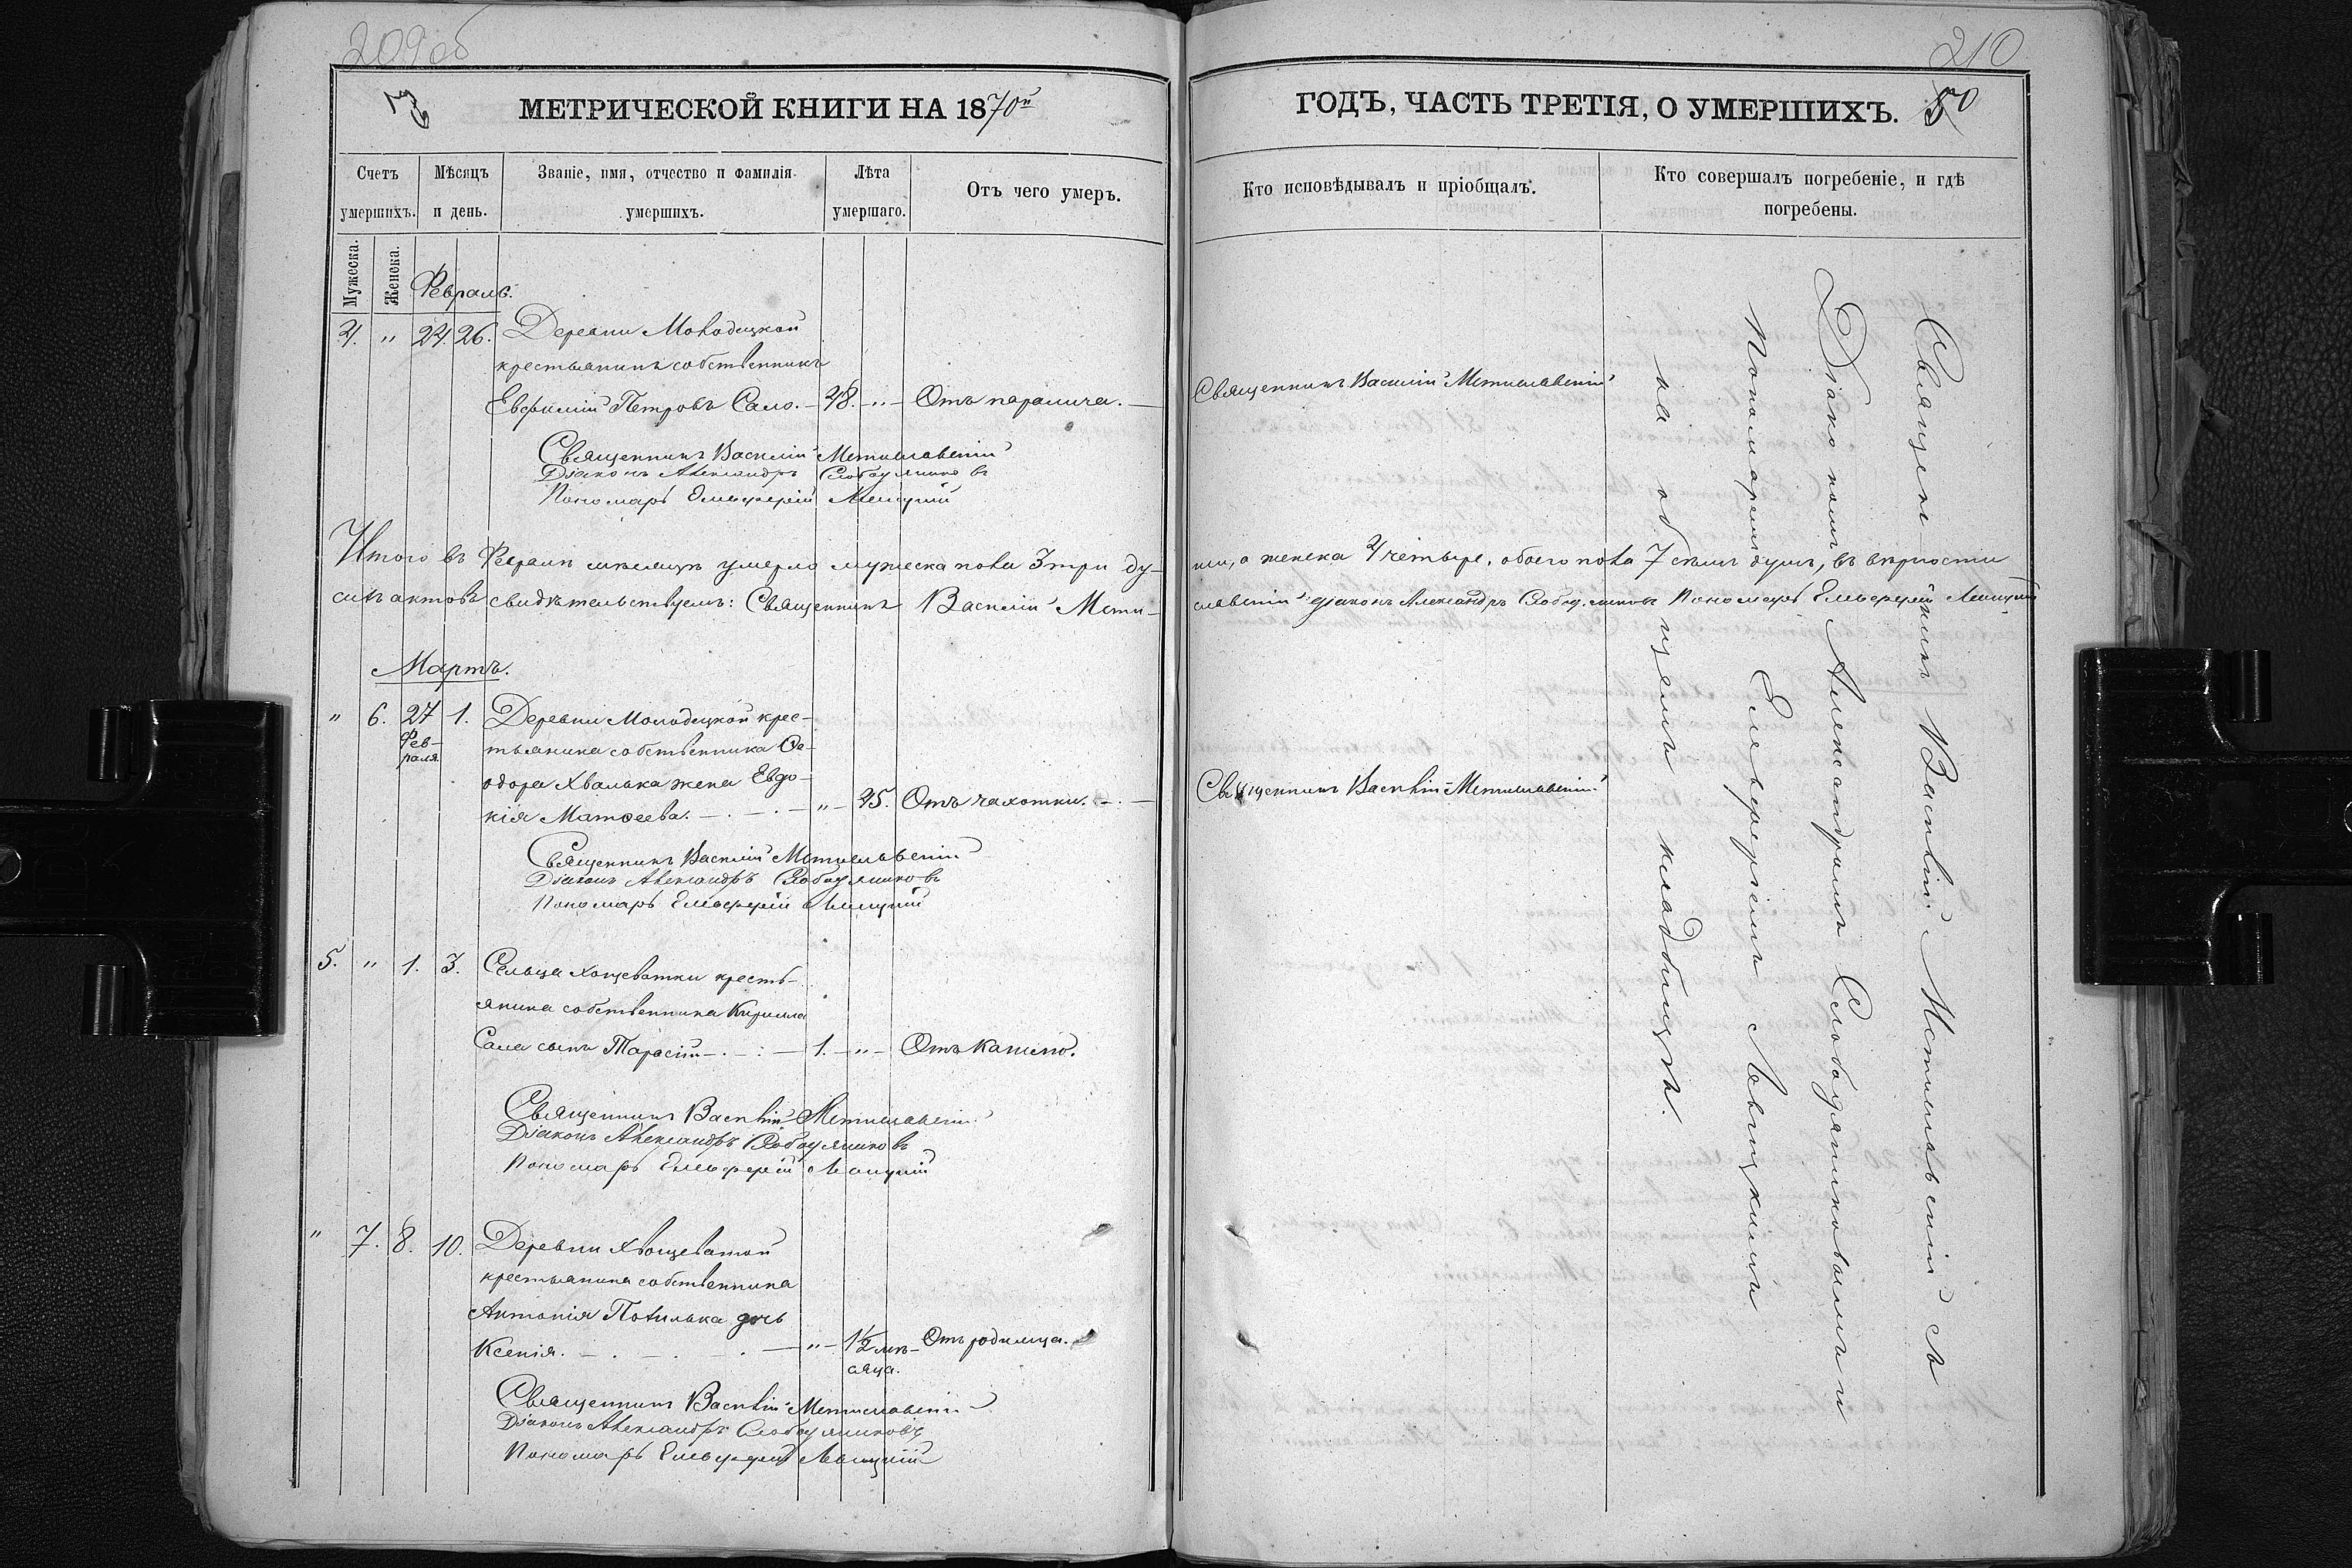 209об
МЕТРИЧЕСКОЙ КНИГИ НА 1870й
Счетъ умершихъ.
Мѣсяцъ и день.
Званіе, имя, отчество и фамилія умершихъ.
Лѣта умершаго.
Отъ чего умеръ.
Мужеска.
Женска.
Февраль.
4. " 24. 26. Деревни Молодецкой
крестьянинъ собственникъ
Евфимій Петровъ Сало. — 48. — " — Отъ паралича. —
Священникъ Василій Мстиславскій
Діаконъ Александръ Слободяниковъ
Пономарь Елевферій Левицкій
Итого въ Февралѣ мѣсяцѣ умерло мужеска пола 3 три ду-
сихъ актовъ свидѣтельствуемъ: Священникъ Василій Мсти-
Мартъ.
" 6. 27 Февраля 1. Деревни Молодецкой крес-
тьянина собственника Ѳе-
одора Хвалька жена Евдо-
кія Матѳеева. — " — 25. Отъ чахотки. —
Священникъ Василій Мстиславскій
Діаконъ Александръ Слободяниковъ
Пономарь Елевферій Левицкій
5. " 1. 3. Сельца Хощеватки кресть-
янина собственника Кирилла
Сала сынъ Тарасій — 1. — " — Отъ кашлю.
Священникъ Василій Мстиславскій
Діаконъ Александръ Слободяниковъ
Пономарь Елевферій Левицкій
" 7. 8. 10. Деревни Хвощеватой
крестьянина собственника
Антонія дочь
Ксенія. — " — 1½ мѣ- Отъ родимца.
сяца.
Священникъ Василій Мстиславскій
Діаконъ Александръ Слободяниковъ
Пономарь Елевферій Левицкій
210
ГОДЪ, ЧАСТЬ ТРЕТІЯ, О УМЕРШИХЪ. 50
Кто исповѣдывалъ и пріобщалъ.
Кто совершалъ погребеніе, и гдѣ погребены.
Священникъ Василій Мстиславскій
ши, а женска 4 четыре, обоего пола 7 семь душъ, въ вѣрности
славскій діаконъ Александръ Слободяниковъ Пономарь Елевферій Левицкій
Священникъ Василій Мстиславскій
Священникъ Василій Мстиславскій съ
Діакономъ Александромъ Слободяниковымъ и
Пономаремъ Елевферіемъ Левицкимъ
на общемъ кладбищѣ.